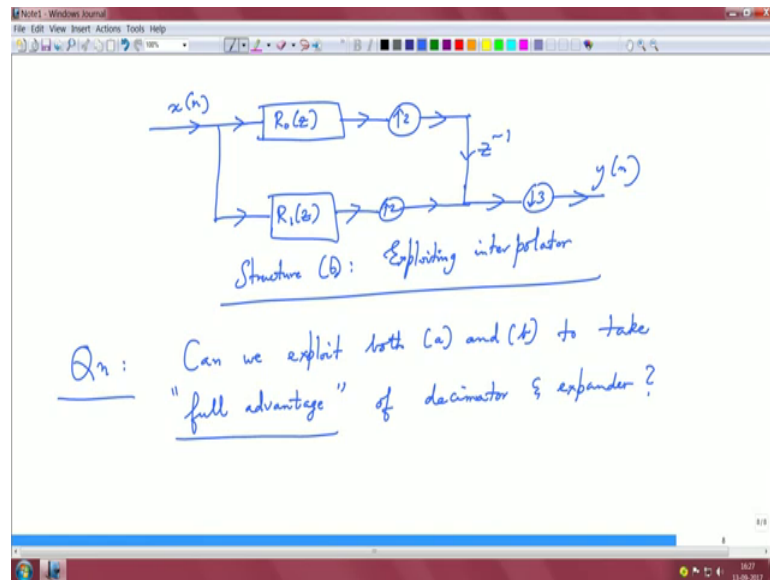 Note1 - Windows Journal
File Edit View Insert Actions Tools Help
100%
B I
x(n)
R₀(z)
↑2
z⁻¹
R₁(z)
↑2
↓3
y(n)
Structure (b): Exploiting interpolator
Qn: Can we exploit both (a) and (b) to take
"full advantage" of decimator & expander?
8/8
8
16:27
13-09-2017